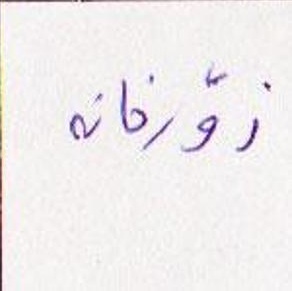 زوّرخانه